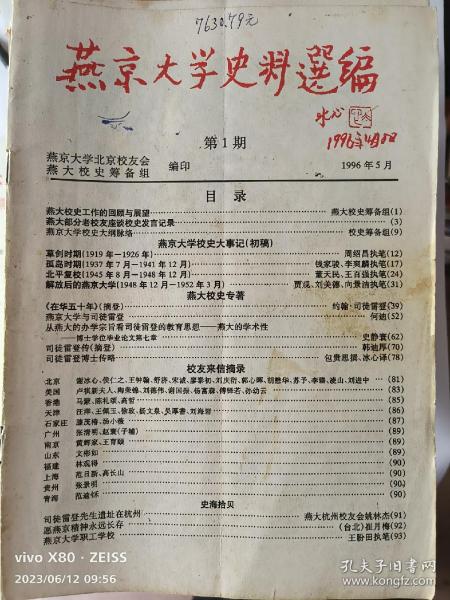 7630.79元
燕京大学史料選编
冰心
1996年4月5日
第1期
燕京大学北京校友会
燕大校史筹备组
编印
1996年5月
目录
燕大校史工作的回顾与展望 燕大校史筹备组(1)
燕大部分老校友座谈校史发言记录 (3)
燕京大学校史大纲脉络 校史筹备组(9)
燕京大学校史大事记(初稿)
草创时期(1919年-1926年) 周绍昌执笔(12)
孤岛时期(1937年7月-1941年12月) 钱家骏、李爽麟执笔(17)
北平复校(1945年8月-1948年12月) 董天民、王百强执笔(24)
解放后的燕京大学(1948年12月-1952年3月) 贾观、刘美德、向景洁执笔(31)
燕大校史专著
《在华五十年》(摘登) 约翰·司徒雷登(39)
燕京大学与司徒雷登 何迪(52)
从燕大的办学宗旨看司徒雷登的教育思想——燕大的学术性
——博士学位毕业论文第七章 史静寰(62)
司徒雷登传(摘登) 韩迪厚(70)
司徒雷登博士传略 包贵思撰、冰心译(78)
校友来信摘录
北京 谢冰心、侯仁之、王钟翰、舒济、宋诚、廖泰初、刘庆衍、郭心晖、胡懋华、苏予、李臻、凌山、刘进中 (81)
美国 卢祺新夫人、陶荣锦、刘德伟、谢国振、杨富森、傅铎若、孙幼云 (83)
香港 马蒙、陈礼颂、高哲 (85)
天津 汪洋、王佩玉、徐玫、杨文泉、吴厚香、刘海澜 (86)
石家庄 滕茂椿、汤小薇 (87)
广州 张清明、赵寰(子辅) (89)
南京 黄辉家、王育颐 (89)
山东 文彬如 (89)
福建 林观得 (90)
上海 范日新、高长山 (90)
贵州 张景明 (90)
青海 范迪钚 (90)
史海拾贝
司徒雷登先生遗址在杭州 燕大杭州校友会姚林杰(91)
愿燕京精神永远长存 (台北)崔月梅(92)
燕京大学职工学校 王肦田执笔(93)
vivo X80 · ZEISS
2023/06/12 09:56
孔夫子旧书网